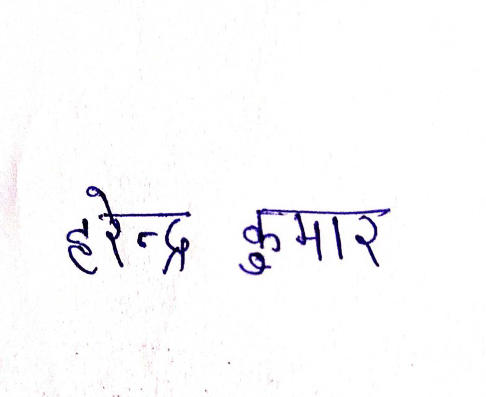 हरेन्द्र कुमार